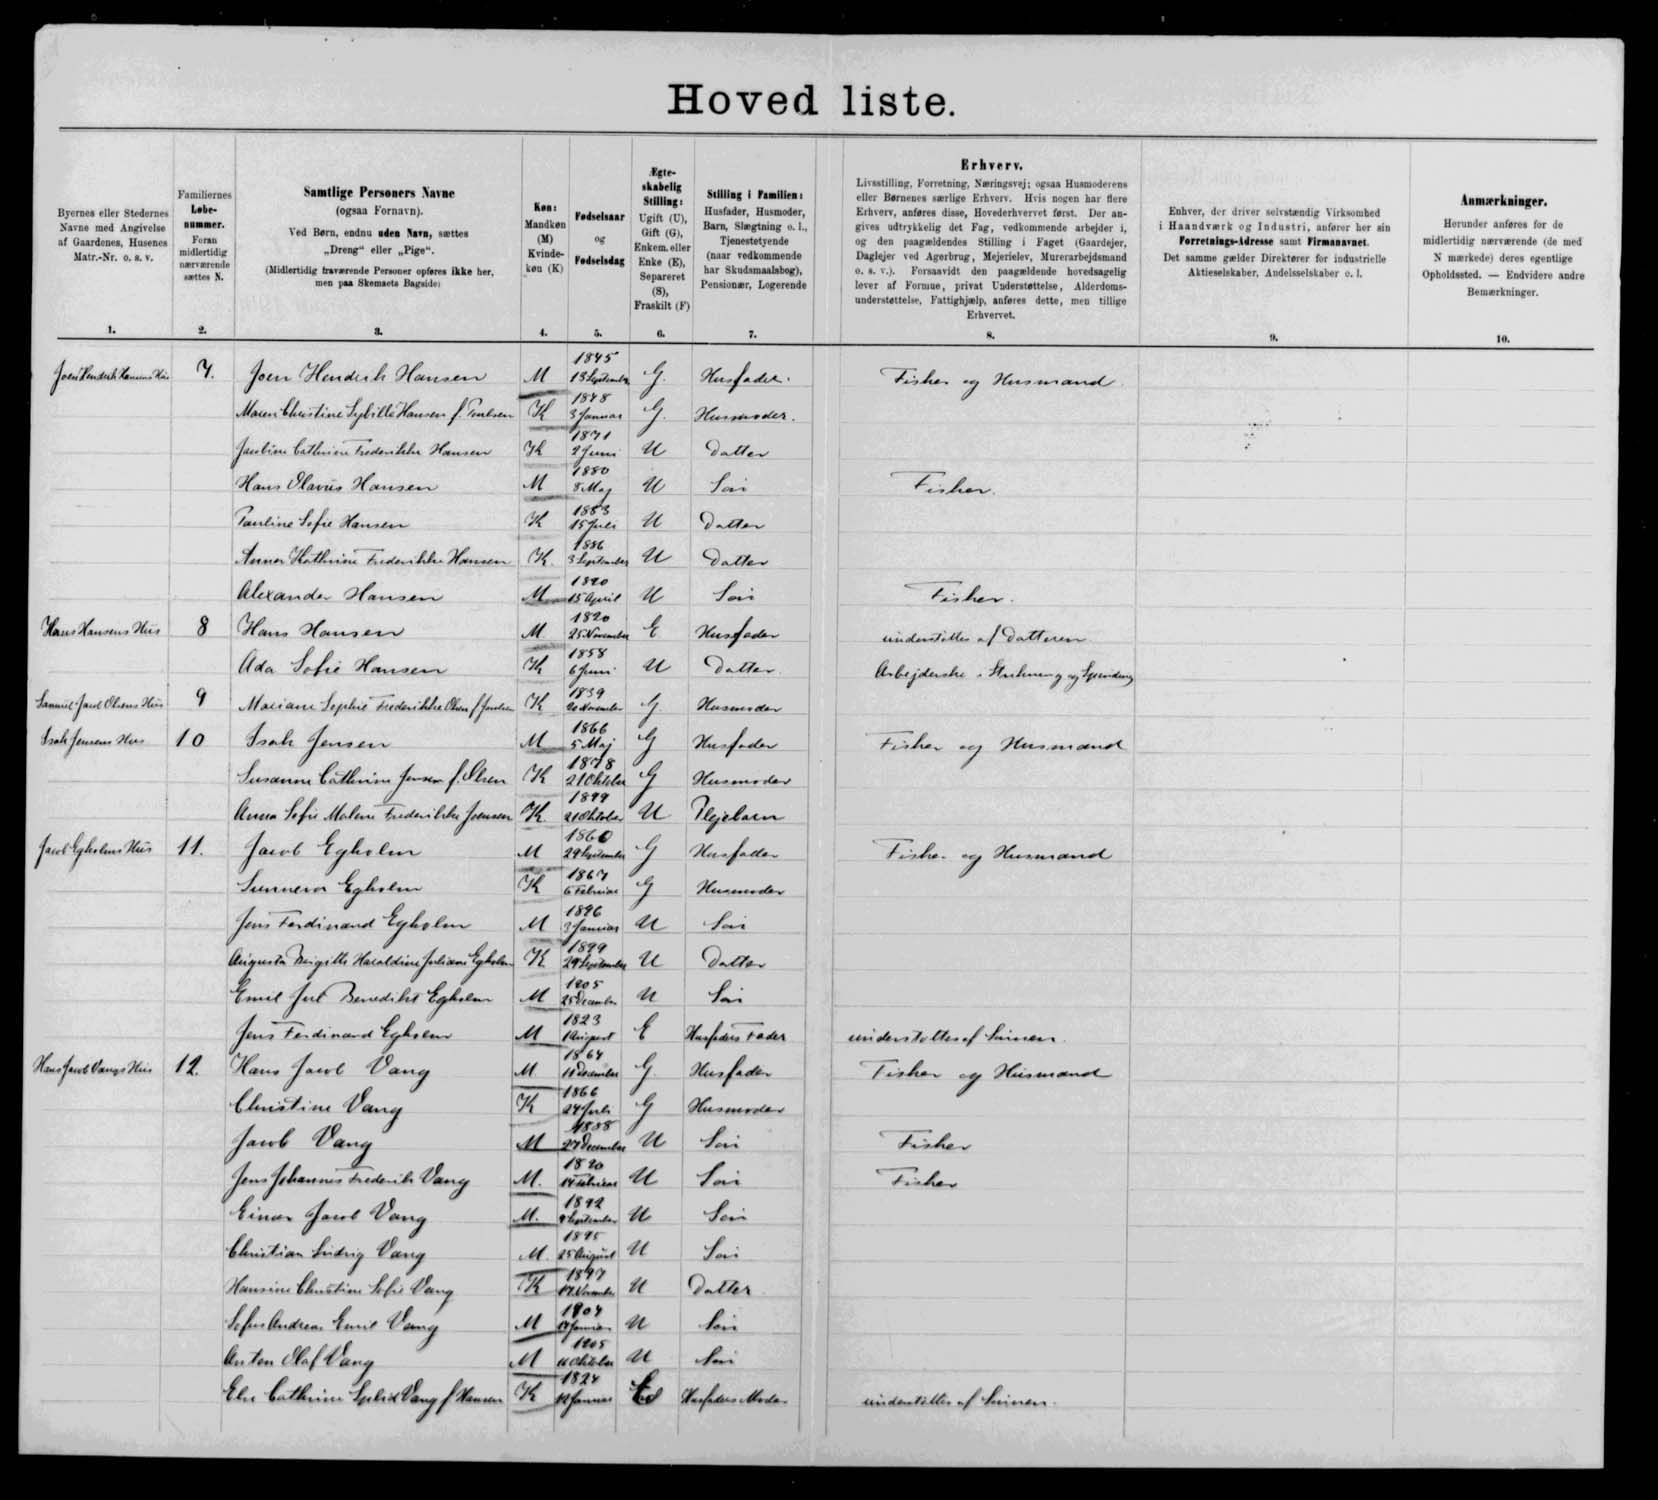 Hoved liste.
Byernes eller Stedernes
Navne med Angivelse
af Gaardenes, Husenes
Matr.-Nr. o. s. v.
1.
Familiernes
Løbe-
nummer.
Foran
midlertidig
nærværende
sættes N.
2.
Samtlige Personers Navne
(ogsaa Fornavn).
Ved Børn, endnu uden Navn, sættes
„Dreng“ eller „Pige“.
(Midlertidig fraværende Personer opføres ikke her,
men paa Skemaets Bagside)
3.
Køn:
Mandkøn
(M)
Kvinde-
køn (K)
4.
Fødselsaar
og
Fødselsdag
5.
Ægte-
skabelig
Stilling:
Ugift (U),
Gift (G),
Enkem. eller
Enke (E),
Separeret
(S),
Fraskilt (F)
6.
Stilling i Familien:
Husfader, Husmoder,
Barn, Slægtning o. l.,
Tjenestetyende
(naar vedkommende
har Skudsmaalsbog),
Pensionær, Logerende
7.
Erhverv.
Livsstilling, Forretning, Næringsvej; ogsaa Husmoderens
eller Børnenes særlige Erhverv. Hvis nogen har flere
Erhverv, anføres disse, Hovederhvervet først. Der an-
gives udtrykkelig det Fag, vedkommende arbejder i,
og den paagældendes Stilling i Faget (Gaardejer,
Daglejer ved Agerbrug, Mejerielev, Murerarbejdsmand
o. s. v.). Forsaavidt den paagældende hovedsagelig
lever af Formue, privat Understøttelse, Alderdoms-
understøttelse, Fattighjælp, anføres dette, men tillige
Erhvervet.
8.
Enhver, der driver selvstændig Virksomhed
i Haandværk og Industri, anfører her sin
Forretnings-Adresse samt Firmanavnet.
Det samme gælder Direktører for industrielle
Aktieselskaber, Andelsselskaber o. l.
9.
Anmærkninger.
Herunder anføres for de
midlertidig nærværende (de med
N mærkede) deres egentlige
Opholdssted. — Endvidere andre
Bemærkninger.
10.
Joen Henderik Hansens Hus 7. Joen Henderik Hansen M 1845 13 September G. Husfader. Fisker og Husmand.
Maren Christine Sybille Hansen f. Poulsen K 1848 3 Januar G. Husmoder.
Jacobine Cathrine Frederikke Hansen K 1871 2 Juni U Datter
Hans Olavus Hansen M 1880 8 Maj U Søn Fisker.
Pauline Sofie Hansen K 1883 15 Juli U Datter
Anna Kathrine Frederikke Hansen K. 1886 3 September U Datter
Alexander Hansen M 1890 15 April U Søn Fisker.
Hans Hansens Hus 8 Hans Hansen M. 1820 25 November E Husfader understøttes af Datteren
Ada Sofie Hansen K 1858 6 Juni U Datter. Arbejderske i Strikning og Spinding
Samuel Jacob Olsens Hus 9 Mariane Sophie Frederikke Olsen f. K 1839 20 November G. Husmoder
Isak Jensens Hus 10 Isak Jensen M 1866 5 Maj G Husfader Fisker og Husmand
Susanne Cathrine Jensen f. Olsen K 1878 21 Oktober G Husmoder
Anna Sofie Malene Frederikke Joensen K. 1899 21 Oktober U Plejebarn
Jacob Egholms Hus 11. Jacob Egholm M 1860 29 September G Husfader Fisker og Husmand
Sunneva Egholm K 1867 6 Februar G Husmoder
Jens Ferdinand Egholm M 1896 3 Januar U Søn
Augusta Birgitte Haraldine Juliane Egholm K 1899 29 September U Datter
Emil Juul Benedikt Egholm M 1905 25 December U Søn
Jens Ferdinand Egholm M 1823 1 August E Husfaders Fader understøttes af Sønnen.
Hans Jacob Vangs Hus 12. Hans Jacob Vang M. 1864 11 December G. Husfader Fisker og Husmand
Christine Vang K 1866 24 Juli G Husmoder
Jacob Vang M 1888 27 December U Søn Fisker
Jens Johannes Frederik Vang M. 1890 14 Februar U Søn Fisker
Einar Jacob Vang M. 1892 9 September U Søn
Christian Ludvig Vang M. 1895 25 August U Søn
Hansine Christine Sofie Vang K 1897 17 November U Datter
Sofus Andreas Emil Vang M 1904 Januar U Søn
Anton Olaf Vang M 1905 11 Oktober U Søn
Else Cathrine Vang f. Hansen K 1824 12 Januar E Husfaders Moder understøttes af Sønnen.